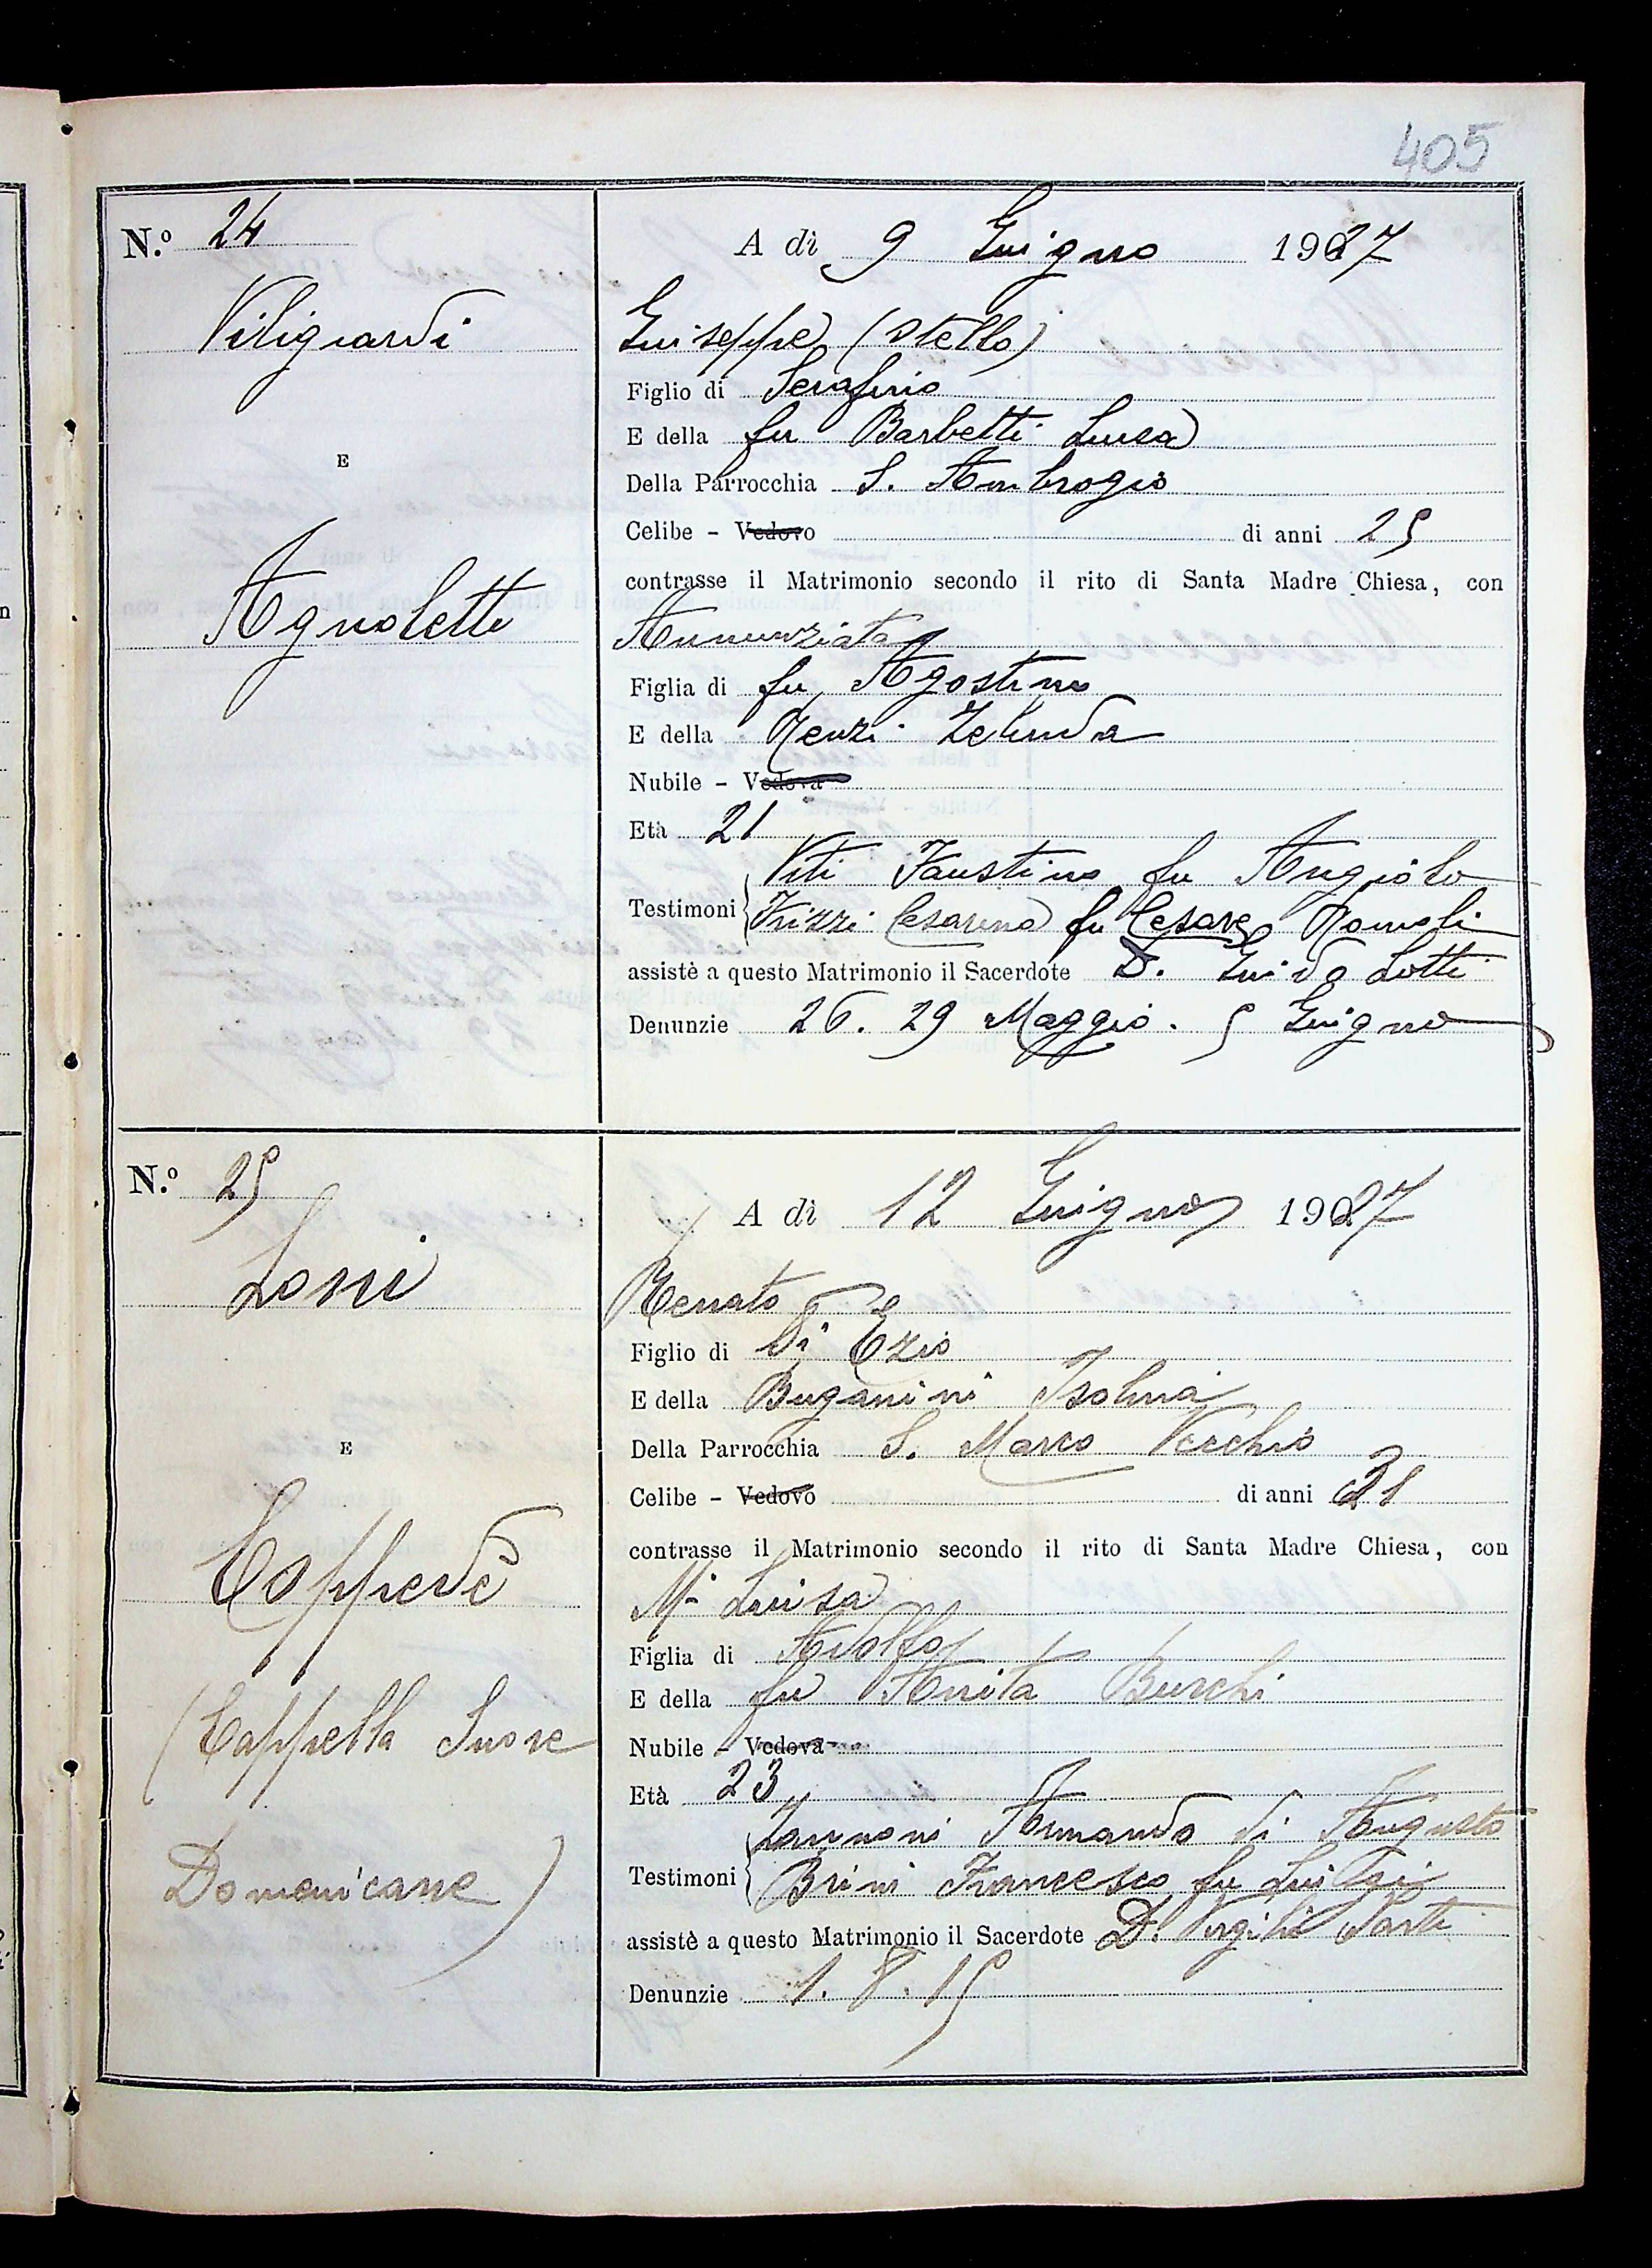 405
N.º 24
A dì 9 Giugno 1927
Viligiardi
Giuseppe (Stello)
Figlio di Serafino
E della fu Barbetti Luisa
E
Della Parrocchia S. Ambrogio
Celibe - Vedovo di anni 25
contrasse il Matrimonio secondo il rito di Santa Madre Chiesa, con
Agnoletti
Annunziata
Figlia di fu Agostino
E della Renzi Zelinda
Nubile - Vedova
Età 21
Viti Faustino fu Angiolo
Testimoni Frizzi Cesarina fu Cesare Romoli
assistè a questo Matrimonio il Sacerdote D. Guido Lotti
Denunzie 26. 29 Maggio. 5 Giugno
N.º 25
A dì 12 Giugno 1927
Loni
Renato
Figlio di Di Ezio
E della Buganini Isolina
E
Della Parrocchia S. Marco Vecchio
Celibe - Vedovo di anni 31
contrasse il Matrimonio secondo il rito di Santa Madre Chiesa, con
Coppedè
Mª Luisa
Figlia di Adolfo
E della fu Anita Burchi
(Cappella Suore
Nubile - Vedova
Età 23
Zannoni Armando di Augusto
Domenicane)
Testimoni Brini Francesco fu Luigi
assistè a questo Matrimonio il Sacerdote D. Virgilio Sarti
Denunzie 1. 8. 15